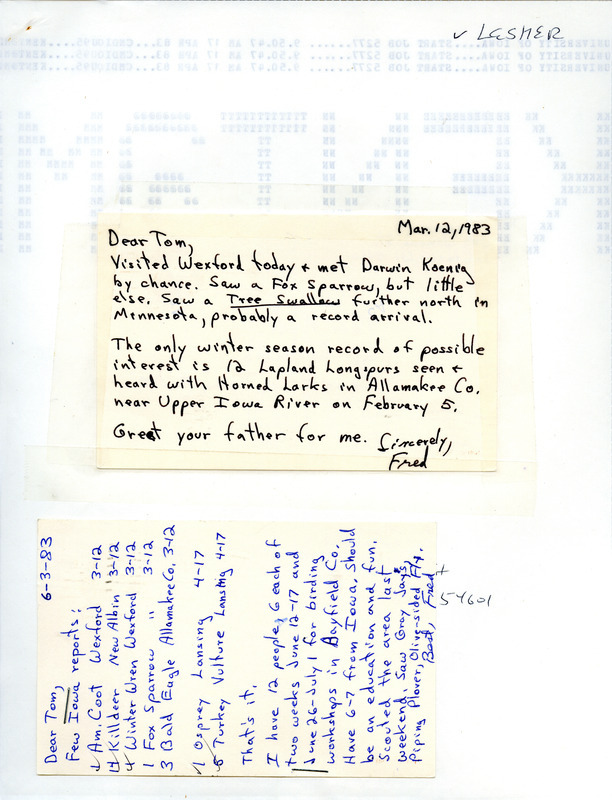 ✓ LESHER
Mar. 12, 1983
Dear Tom,
Visited Wexford today + met Darwin Koenig
by chance. Saw a Fox Sparrow, but little
else. Saw a Tree Swallow further north in
Minnesota, probably a record arrival.
The only winter season record of possible
interest is 12 Lapland Longspurs seen +
heard with Horned Larks in Allamakee Co.
near Upper Iowa River on February 5.
Greet your father for me. Sincerely,
Fred
6-3-83
Dear Tom,
Few Iowa reports:
Am. Coot Wexford 3-12
4 Killdeer New Albin 3-12
Winter Wren Wexford 3-12
1 Fox Sparrow " 3-12
3 Bald Eagle Allamakee Co. 3-12
1 Osprey Lansing 4-17
Turkey Vulture Lansing 4-17
That's it.
I have 12 people, 6 each of
two weeks June 12-17 and
June 26-July 1 for birding
workshops in Bayfield Co.
Have 6-7 from Iowa. Should
be an education and fun.
Scouted the area last
weekend. Saw Gray Jays,
Piping Plover, Olive-sided Fly.
Best, Fred
54601